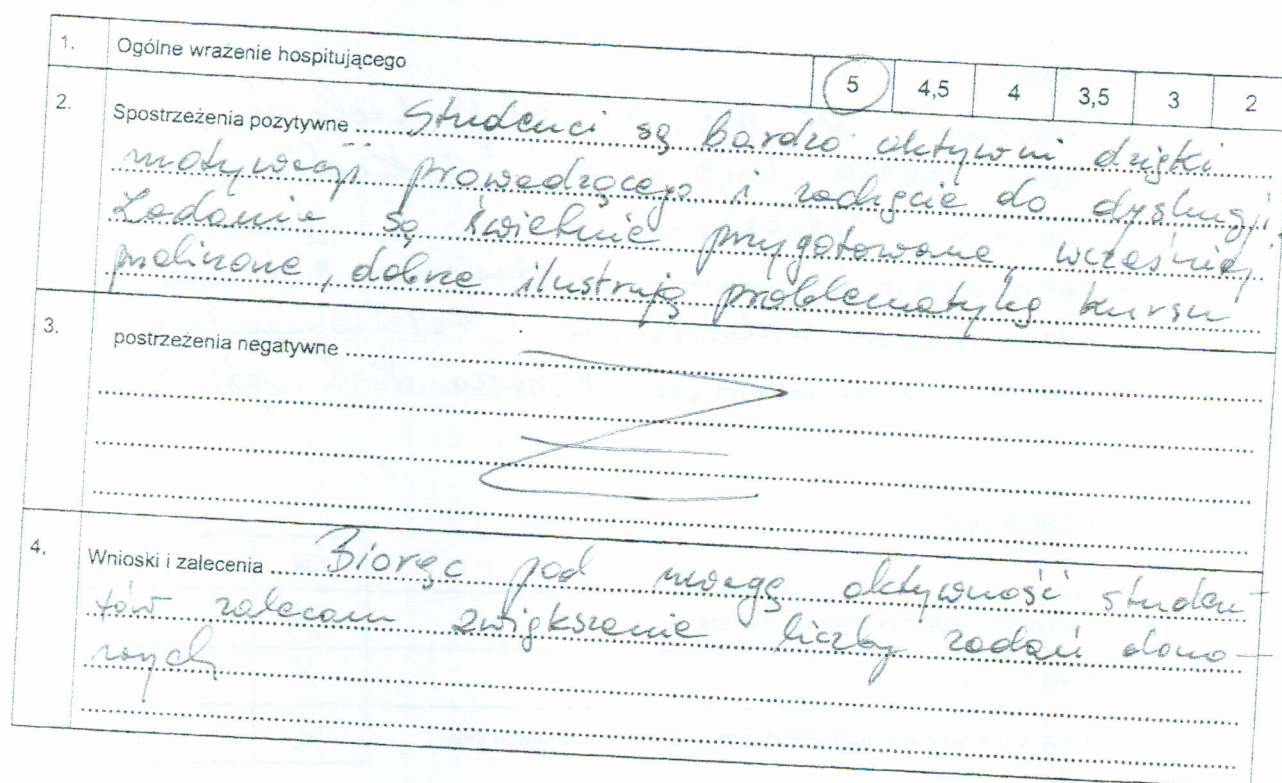 1. Ogólne wrażenie hospitującego 5 4,5 4 3,5 3 2
2. Spostrzeżenia pozytywne Studenci są bardzo aktywni dzięki
motywacji prowadzącego i zachęcie do dyskusji.
Zadania są świetnie przygotowane, wcześniej
przeliczone, dobrze ilustrują problematykę kursu
3. postrzeżenia negatywne
4. Wnioski i zalecenia Biorąc pod uwagę aktywność studen-
tów zalecam zwiększenie liczby zadań domo-
wych